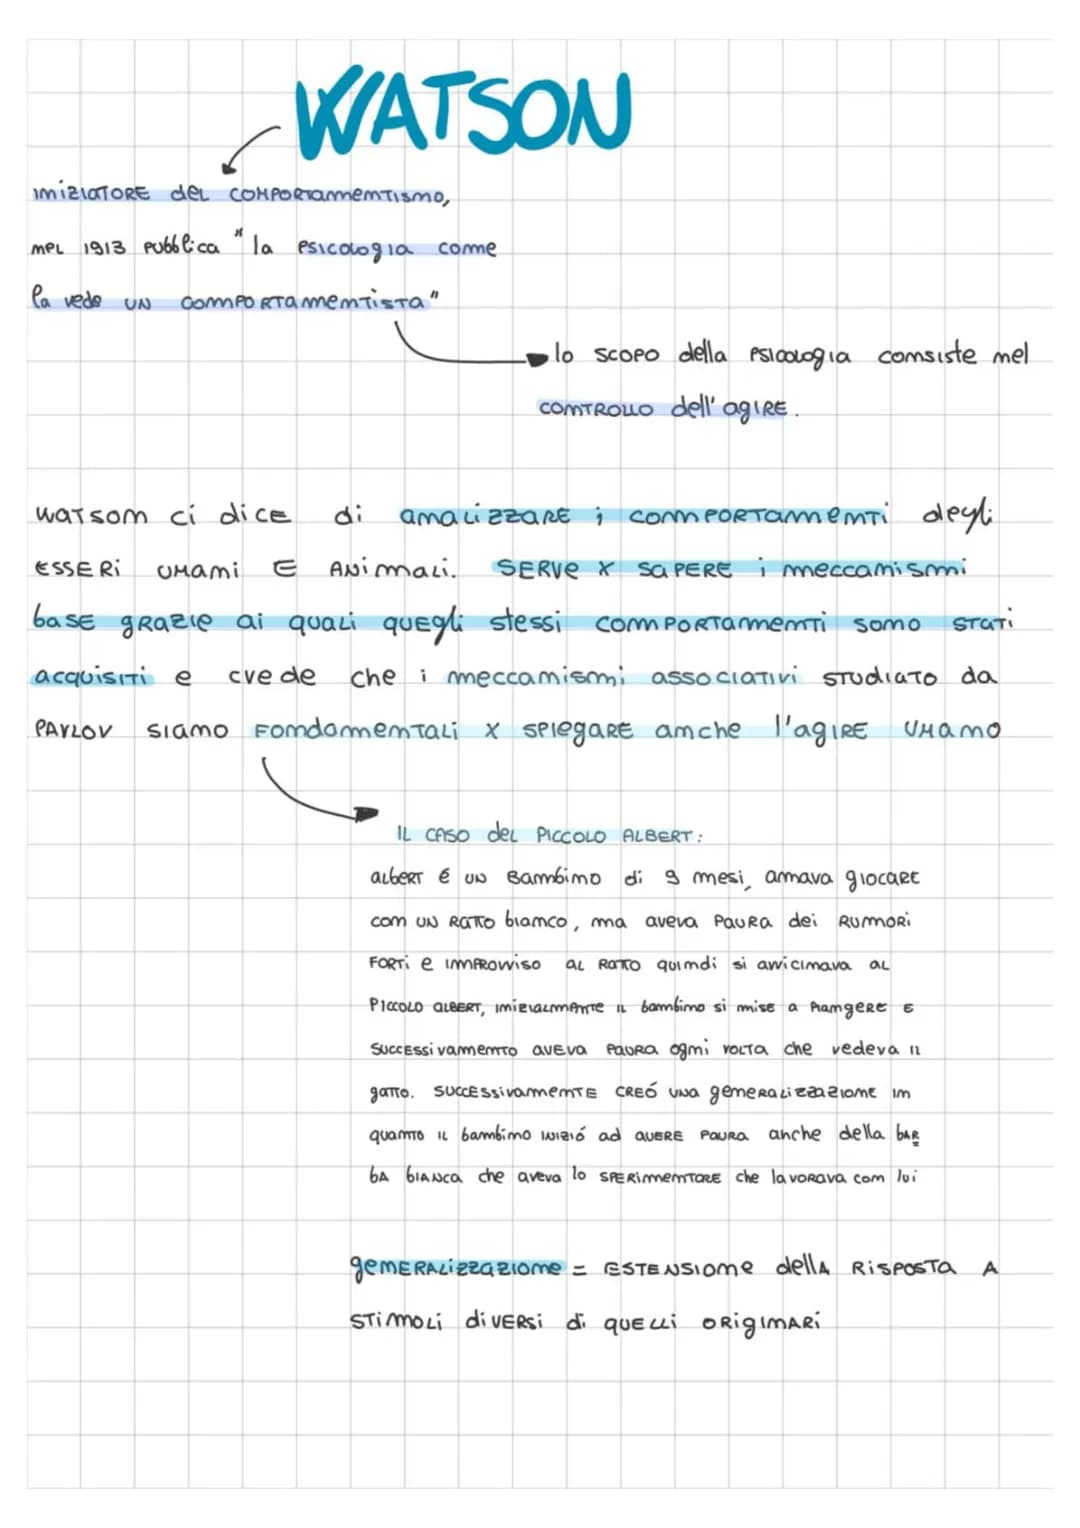 WATSON
iniziatore del comportamentismo,
nel 1913 pubblica "la psicologia come
la vede un comportamentista"
lo scopo della psicologia consiste nel
controllo dell'agire.
Watson ci dice di analizzare i comportamenti degli
esseri umani e animali. Serve x sapere i meccanismi
base grazie ai quali quegli stessi comportamenti sono stati
acquisiti e crede che i meccanismi associativi studiato da
Pavlov siano fondamentali x spiegare anche l'agire umano
Il caso del piccolo Albert:
Albert é un bambino di 9 mesi, amava giocare
con un ratto bianco, ma aveva paura dei rumori
forti e improvviso al ratto quindi si avvicinava al
piccolo Albert, inizialmante il bambino si mise a piangere e
successivamentto aveva paura ogni volta che vedeva il
gatto. Successivamente creó una generalizzazione in
quanto il bambino inizió ad avere paura anche della bar
ba bianca che aveva lo sperimentore che lavorava con lui
generalizzazione = estensione della risposta a
stimoli diversi di quelli originari